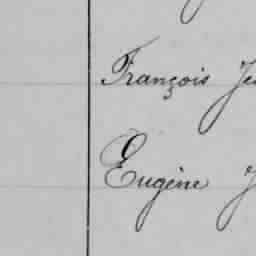 François
Eugène